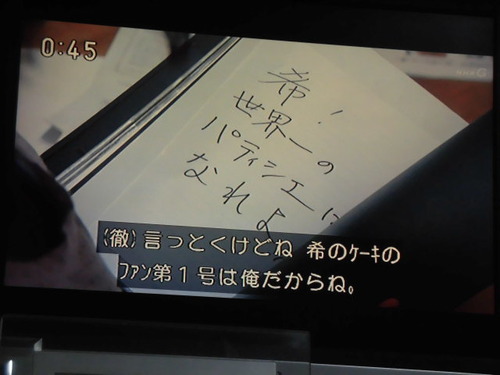 0:45
NHK G
希!
世界一の
パティシエに
なれよ
(徹)言っとくけどね 希のｹｰｷの
ﾌｧﾝ第1号は俺だからね。